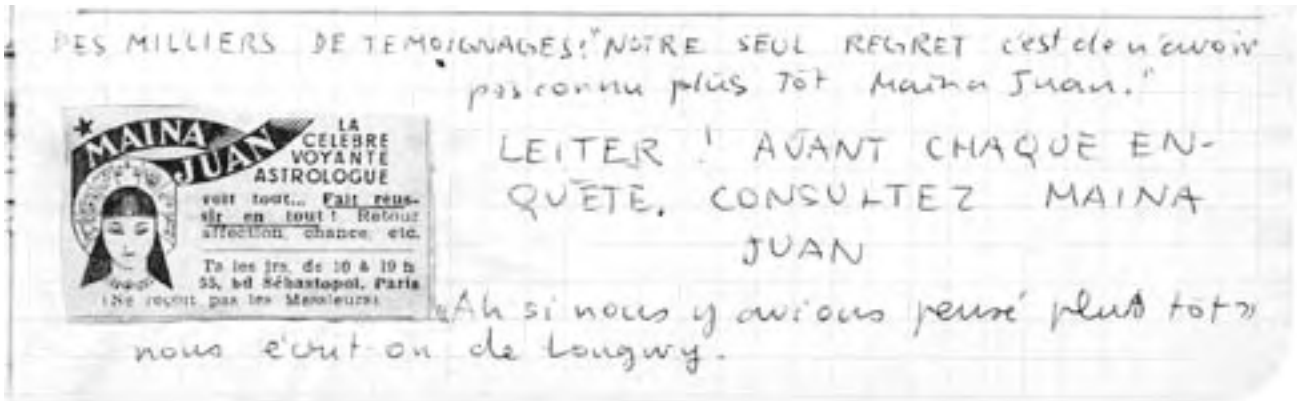 DES MILLIERS DE TEMOIGNAGES: "NOTRE SEUL REGRET c'est de n'avoir
pas connu plus Tôt Maïna Juan."
MAINA
JUAN
LA
CELEBRE
VOYANTE
ASTROLOGUE
voit tout... Fait réus-
sir en tout! Retour
affection, chance, etc.
Ts les jrs, de 10 à 19 h
55, bd Sébastopol, Paris
(Ne reçoit pas les Messieurs)
LEITER ! AVANT CHAQUE EN-
QUÊTE, CONSULTEZ MAINA
JUAN
"Ah si nous y avions pensé plus tot»
nous écrit-on de Longwy.